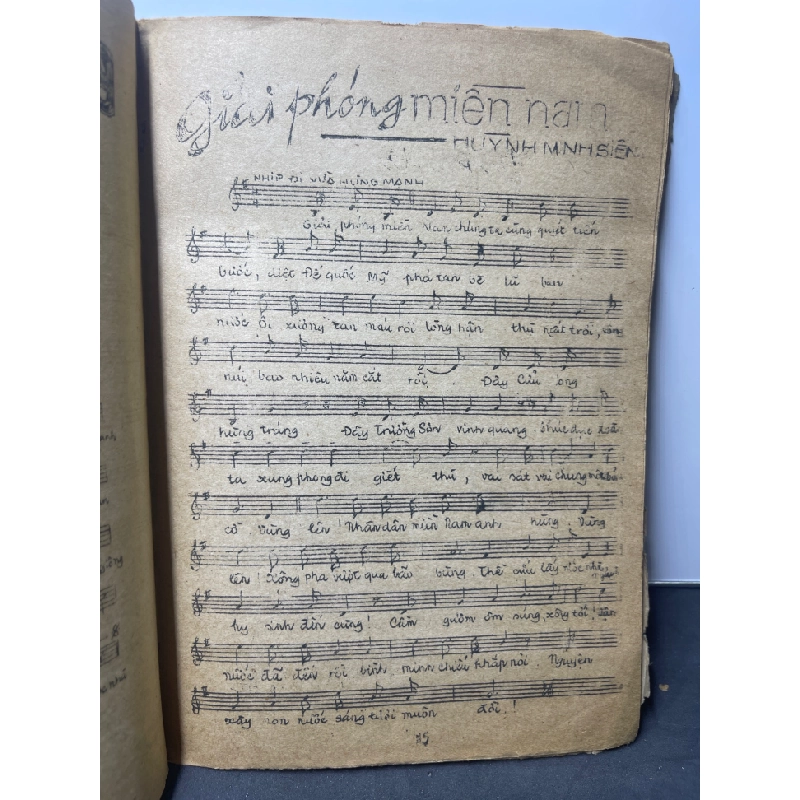 Giải phóng miền nam
HUỲNH MINH SIÊNG
NHỊP ĐI VừA HÙNG MẠNH
Giải phóng miền Nam chúng ta cùng quyết tiến
bước, diệt Đế quốc Mỹ phá tan bè lũ bán
nước ôi xương tan máu rơi lòng hận thù ngất trời, sông
núi bao nhiêu năm cắt rời. Đây Cửu Long
hùng tráng. Đây Trường Sơn vinh quang thúc giục
ta xung phong đi giết thù, vai sát vai chung một bóng
cờ. Vùng lên! Nhân dân miền Nam anh hùng. Vùng
lên! Xông pha vượt qua bão bùng. Thề cứu lấy nước nhà
hy sinh đến cùng! Cầm gươm ôm súng xông tới! Vận
nước đã đến rồi bình minh chiếu khắp nơi. Nguyện
xây non nước sáng tươi muôn đời.!
75